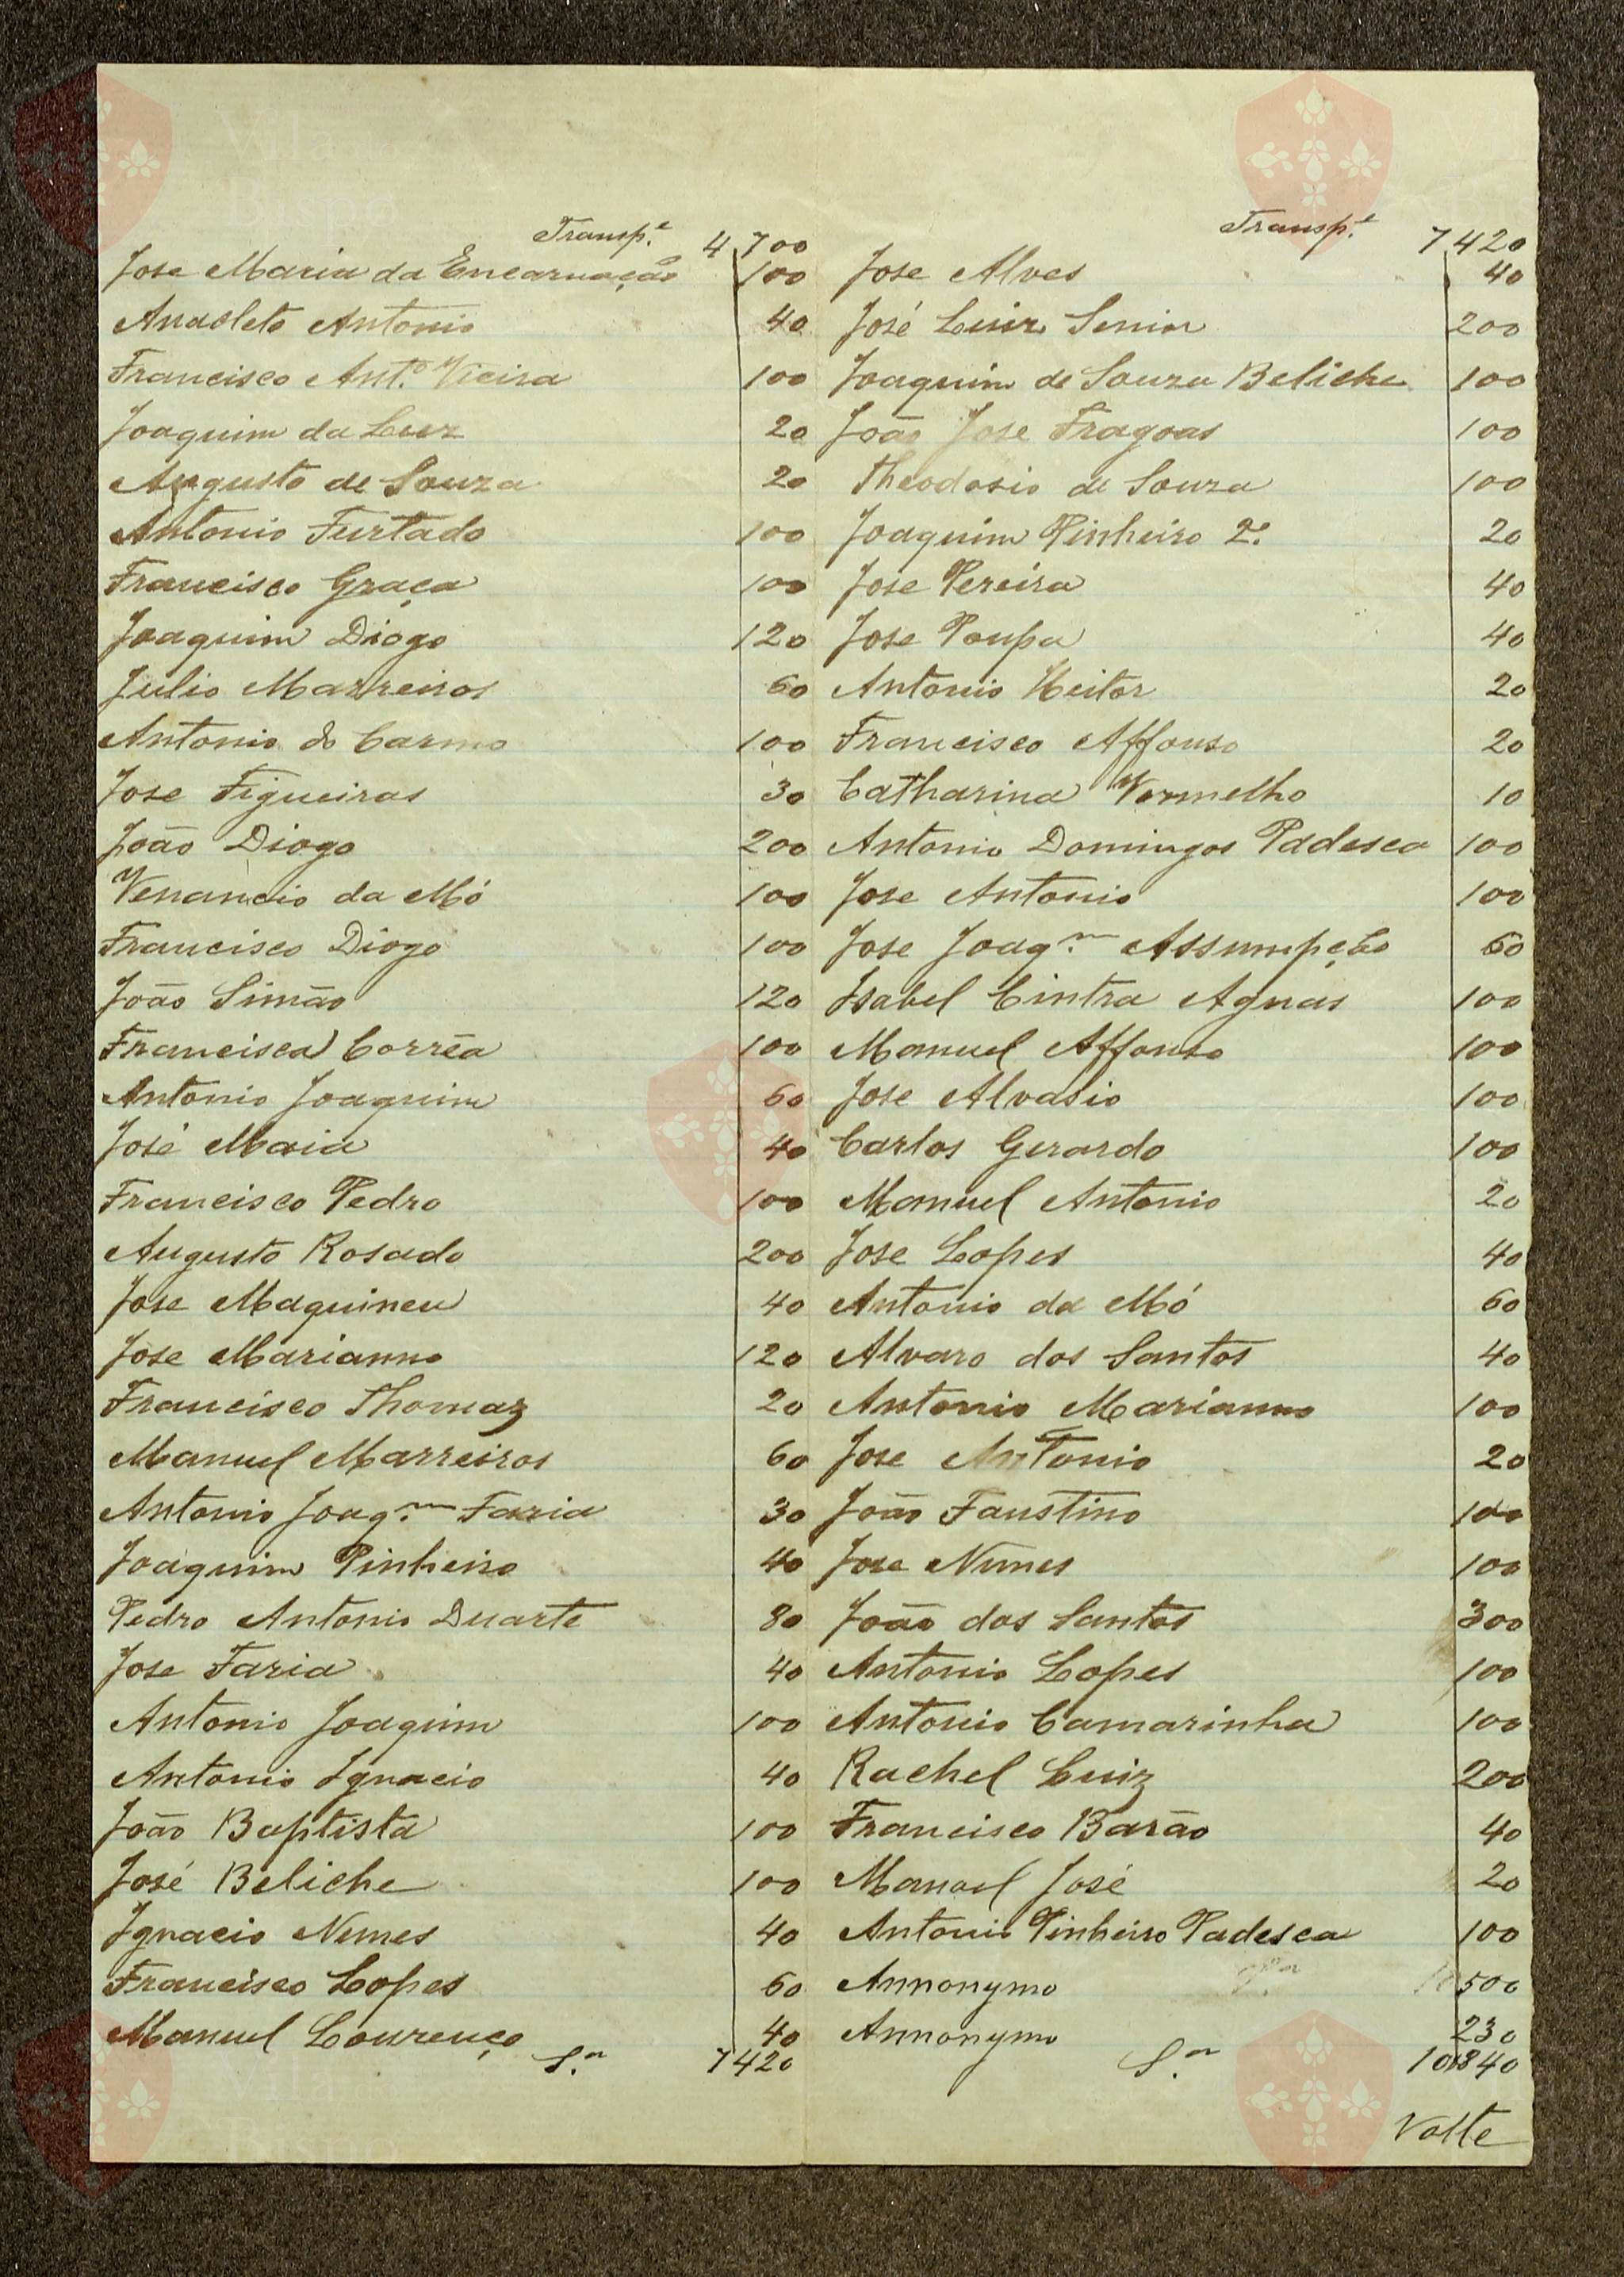 Transp.e 4700
Jose Maria da Encarnação 100
Anacleto Antonio 40
Francisco Ant.o Vieira 100
Joaquim da Luz 20
Augusto de Souza 20
Antonio Furtado 100
Francisco Graça 100
Joaquim Diogo 120
Julio Marreiros 60
Antonio do Carmo 100
Jose Figueiras 30
João Diogo 200
Venancio da Mó 100
Francisco Diogo 100
João Simão 120
Francisca Corrêa 100
Antonio Joaquim 60
José Maia 40
Francisco Pedro 100
Augusto Rosado 200
Jose Maquineu 40
Jose Marianno 120
Francisco Thomaz 20
Manuel Marreiros 60
Antonio Joaq.m Faria 30
Joaquim Pinheiro 40
Pedro Antonio Duarte 80
Jose Faria 40
Antonio Joaquim 100
Antonio Ignacio 40
João Baptista 100
José Beliche 100
Ignacio Nunes 40
Francisco Lopes 60
Manuel Lourenço 40
S.a 7420
Transp.e 7420
Jose Alves 40
José Luiz Senior 200
Joaquim de Souza Beliche 100
João Jose Fragoas 100
Theodosio de Souza 100
Joaquim Pinheiro 2.o 20
Jose Pereira 40
Jose Poupa 40
Antonio Heitor 20
Francisco Affonso 20
Catharina Vermelho 10
Antonio Domingos Padesca 100
Jose Antonio 100
Jose Joaq.m Assumpção 60
Isabel Cintra Aguas 100
Manuel Affonso 100
Jose Alvasio 100
Carlos Gerardo 100
Manuel Antonio 20
Jose Lopes 40
Antonio da Mó 60
Alvaro dos Santos 40
Antonio Marianno 100
Jose Antonio 20
João Faustino 100
Jose Nunes 100
João dos Santos 300
Antonio Lopes 100
Antonio Camarinha 100
Rachel Luiz 200
Francisco Barão 40
Manoel José 20
Antonio Pinheiro Padesca 100
Annonymo 500
Annonymo 230
S.a 10840
Volte